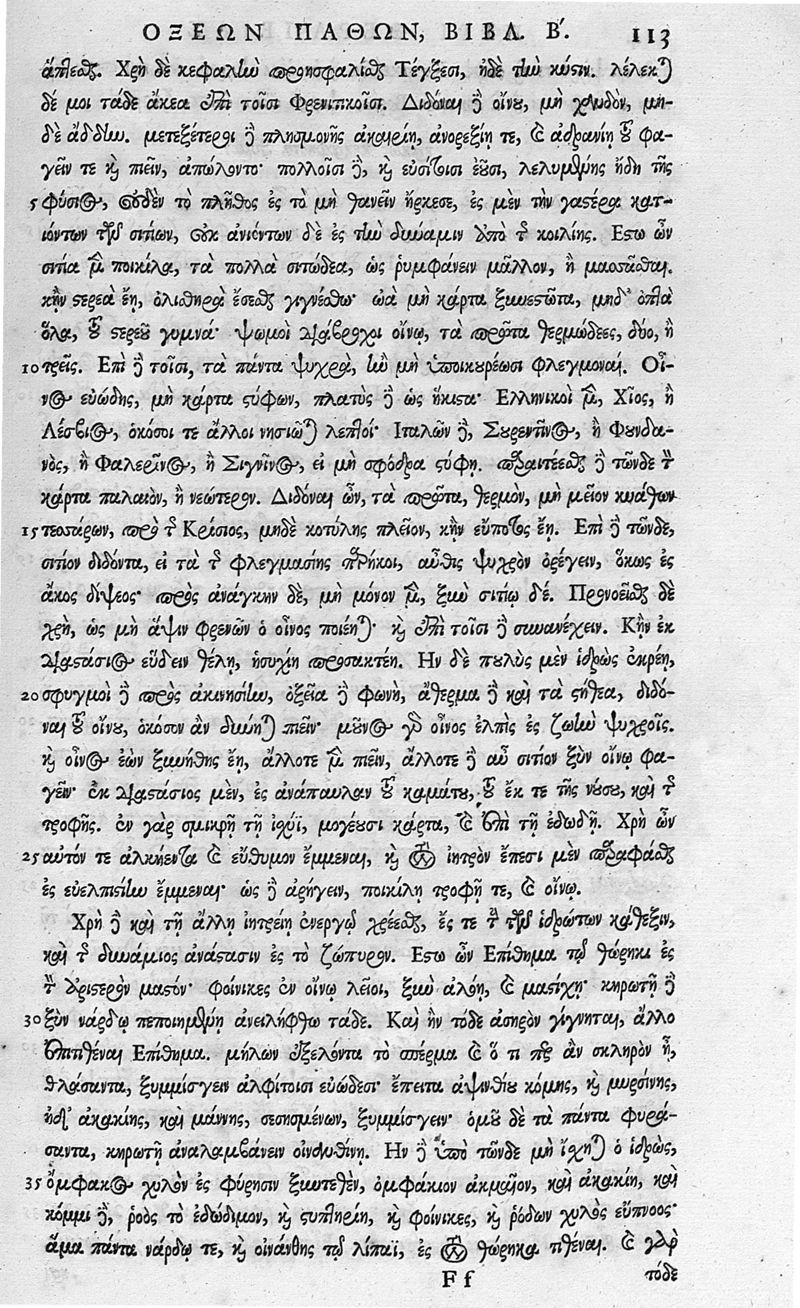 ΟΞΕΩΝ ΠΑΘΩΝ, ΒΙΒΛ. Β΄. 113
ἅπτεσθαι. Χρὴ δὲ κεφαλὴν προησφαλίσθαι Τέγξεσι, ἠδὲ τὴν κύστιν. λέλεκται
δέ μοι τάδε ἄκεα ἐπὶ τοῖσι Φρενιτικοῖσι. Διδόναι δὲ οἴνου, μὴ χύδην, μη-
δὲ ἄδδην. μετεξέτεροι δὲ πλησμονῆς ἀκαιρίῃ, ἀνορεξίῃ τε, καὶ ἀδρανίῃ τοῦ φα-
γεῖν τε καὶ πιεῖν, ἀπώλοντο· πολλοῖσι δὲ, καὶ εὐσίτοισι ἐοῦσι, λελυμένης ἤδη τῆς
5 φύσιος, οὐδὲν τὸ πλῆθος ἐς τὸ μὴ θανεῖν ἤρκεσε, ἐς μὲν τὴν γαστέρα κατ-
ιόντων τῶν σιτίων, οὐκ ἀνιέντων δὲ ἐς τὴν δύναμιν ἀπὸ τῆς κοιλίης. Εστω ὦν
σιτία μὲν ποικίλα, τὰ πολλὰ σιτώδεα, ὡς ῥυμφάνειν μᾶλλον, ἢ μασσᾶσθαι.
κἢν στερεὰ ἔῃ, ὀλισθηρὰ ἔσεσθαι γιγνέσθω· ὠὰ μὴ κάρτα ξυνεστῶτα, μηδ' ὀπτὰ
ὅλα, τοῦ στερεοῦ γυμνά· ψωμοὶ διάβροχοι οἴνῳ, τὰ πρῶτα θερμώδεες, δύο, ἢ
10 τρεῖς. Επὶ δὲ τοῖσι, τὰ πάντα ψυχρὰ, ἢν μὴ ὑποικουρέωσι φλεγμοναί. Οἶ-
νος εὐώδης, μὴ κάρτα στύφων, πλατὺς δὲ ὡς ἥκιστα· Ελληνικοὶ μὲν, Χῖος, ἢ
Λέσβιος, ὁκόσοι τε ἄλλοι νησιῶται λεπτοί· Ιταλῶν δὲ, Συρεντῖνος, ἢ Φουνδα-
νὸς, ἢ Φαλερῖνος, ἢ Σιγνῖνος, εἰ μὴ σφόδρα στύφῃ. παραιτέεσθαι δὲ τῶνδε τὸν
κάρτα παλαιὸν, ἢ νεώτερον. Διδόναι ὦν, τὰ πρῶτα, θερμὸν, μὴ μεῖον κυάθων
15 τεσσάρων, πρὸ τῆς Κρίσιος, μηδὲ κοτύλης πλεῖον, κἢν εὔποτος ἔῃ. Επὶ δὲ τῶνδε,
σιτίον διδόντα, εἰ τὰ τῆς φλεγμασίης παρήκοι, αὖθις ψυχρὸν ὀρέγειν, ὅκως ἐς
ἄκος δίψεος· πρὸς ἀνάγκην δὲ, μὴ μόνον μὲν, ξὺν σιτίῳ δέ. Προνοεῖσθαι δὲ
χρὴ, ὡς μὴ ἅψιν φρενῶν ὁ οἶνος ποιέηται· καὶ ἐπὶ τοῖσι δὲ συνανέχειν. Κἢν ἐκ
διαστάσιος εὕδειν θέλῃ, ἡσυχίη προσακτέη. Ην δὲ πουλὺς μὲν ἱδρὼς ἐκρέῃ,
20 σφυγμοὶ δὲ πρὸς ἀκινησίην, ὀξεῖα δὲ φωνὴ, ἄθερμα δὲ καὶ τὰ στήθεα, διδό-
ναι τοῦ οἴνου, ὁκόσον ἂν δύνηται πιεῖν· μοῦνος γὰρ οἶνος ἐλπὶς ἐς ζωὴν ψυχροῖς.
καὶ οἶνος ἐὼν ξυνήθης ἔῃ, ἄλλοτε μὲν πιεῖν, ἄλλοτε δὲ αὖ σιτίον ξὺν οἴνῳ φα-
γεῖν· ἐκ διαστάσιος μὲν, ἐς ἀνάπαυλαν τοῦ καμάτου, τοῦ ἔκ τε τῆς νούσου, καὶ τῆς
τροφῆς. ἐν γὰρ σμικρῇ τῇ ἰσχύϊ, μογέουσι κάρτα, καὶ ἐπὶ τῇ ἐδωδῇ. Χρὴ ὦν
25 αὐτόν τε ἀλκήεντα καὶ εὔθυμον ἔμμεναι, καὶ τὸν ἰητρὸν ἔπεσι μὲν παραφάσθαι
ἐς εὐελπιστίην ἔμμεναι· ὡς δὲ ἀρήγειν, ποικίλῃ τροφῇ τε, καὶ οἴνῳ.
Χρὴ δὲ καὶ τῇ ἄλλῃ ἰητρείῃ ἐνεργῶς χρέεσθαι, ἔς τε τὴν τῶν ἱδρώτων κάθεξιν,
καὶ τῆς δυνάμιος ἀνάστασιν ἐς τὸ ζώπυρον. Εστω ὦν Επίθημα τῷ θώρηκι ἐς
τὸν ἀριστερὸν μαστόν· φοίνικες ἐν οἴνῳ λεῖοι, ξὺν ἀλόῃ, καὶ μαστίχῃ· κηρωτῇ δὲ
30 ξὺν νάρδῳ πεποιημένῃ ἀνειλήφθω τάδε. Καὶ ἢν τόδε ἀσηρὸν γίγνηται, ἄλλο
ἐπιτιθέναι Επίθημα. μήλων ἐξελόντα τὸ σπέρμα καὶ ὅ τι περ ἂν σκληρὸν ᾖ,
θλάσαντα, ξυμμίσγειν ἀλφίτοισι εὐώδεσι· ἔπειτα ἀψινθίου κόμης, καὶ μυρσίνης,
ἠδ' ἀκακίης, καὶ μάννης, σεσησμένων, ξυμμίσγειν· ὁμοῦ δὲ τὰ πάντα φυρά-
σαντα, κηρωτῇ ἀναλαμβάνειν οἰνανθίνῃ. Ην δὲ ὑπὸ τῶνδε μὴ ἴσχηται ὁ ἱδρὼς,
35 ὄμφακος χυλὸν ἐς φύρησιν ξυντεθὲν, ὀμφάκιον ἀκμαῖον, καὶ ἀκακίη, καὶ
κόμμι δὲ, ῥοὸς τὸ ἐδώδιμον, καὶ στυπτηρίη, καὶ φοίνικες, καὶ ῥόδων χυλὸς εὔπνοος·
ἅμα πάντα νάρδῳ τε, καὶ οἰνάνθης τῷ λίπαϊ, ἐς τὸν θώρηκα τιθέναι. καὶ γὰρ
F f τόδε